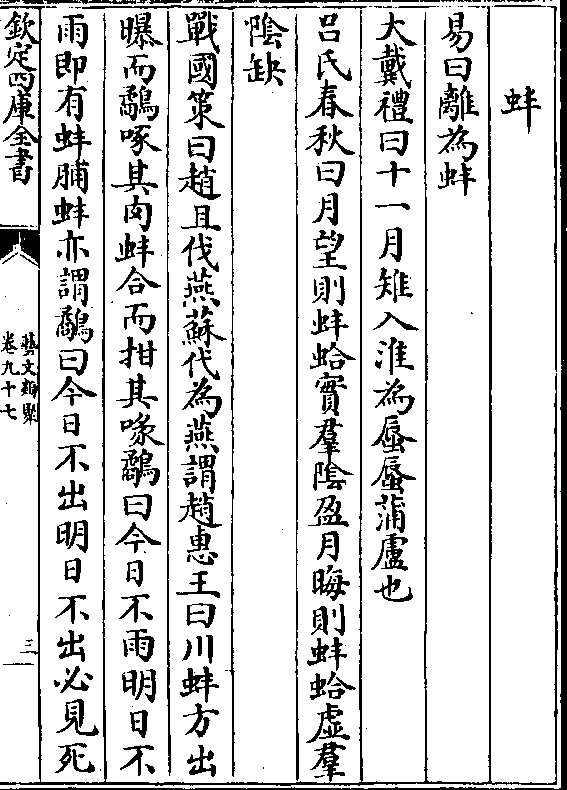 蚌
易曰離為蚌
大戴禮曰十一月雉入淮為蜃蜃蒲盧也
呂氏春秋曰月望則蚌蛤實羣隂盈月晦則蚌蛤虚羣
隂缺
戰國策曰趙且伐燕蘇代為燕謂趙惠王曰川蚌方出
曝而鷸啄其肉蚌合而拑其喙鷸曰今日不雨明日不
雨即有蚌脯蚌亦謂鷸曰今日不出明日不出必見死
欽定四庫全書
藝文類聚
卷九十七
三